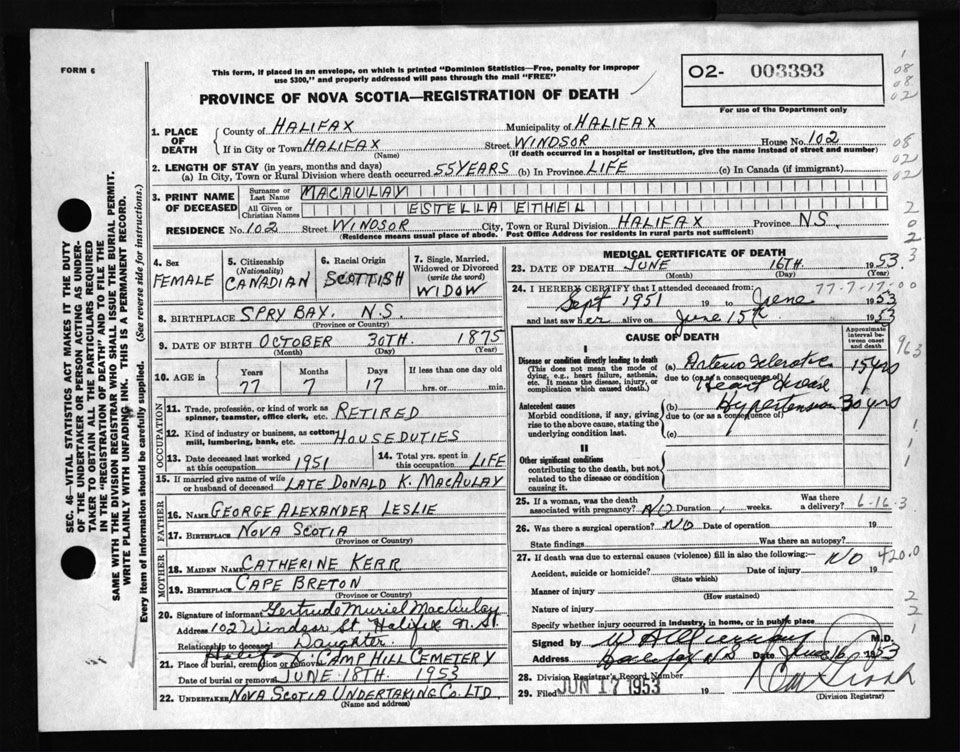 FORM 6
This form, if placed in an envelope, on which is printed "Dominion Statistics—Free, penalty for improper
use $300," and properly addressed will pass through the mail "FREE"
O2- 003393
For use of the Department only
PROVINCE OF NOVA SCOTIA—REGISTRATION OF DEATH
1. PLACE OF DEATH
County of HALIFAX Municipality of HALIFAX
If in City or Town HALIFAX Street WINDSOR House No. 102
(Name) (If death occurred in a hospital or institution, give the name instead of street and number)
2. LENGTH OF STAY (in years, months and days)
(a) In City, Town or Rural Division where death occurred 55 YEARS (b) In Province LIFE (c) In Canada (if immigrant)
3. PRINT NAME OF DECEASED
Surname or Last Name MACAULAY
All Given or Christian Names ESTELLA ETHEL
RESIDENCE No. 102 Street WINDSOR City, Town or Rural Division HALIFAX Province N.S.
(Residence means usual place of abode. Post Office Address for residents in rural parts not sufficient)
4. Sex FEMALE
5. Citizenship (Nationality) CANADIAN
6. Racial Origin SCOTTISH
7. Single, Married, Widowed or Divorced (write the word) WIDOW
8. BIRTHPLACE SPRY BAY. N.S.
(Province or Country)
9. DATE OF BIRTH OCTOBER 30TH. 1875
(Month) (Day) (Year)
10. AGE in Years Months Days If less than one day old
77 7 17 hrs. or min.
OCCUPATION
11. Trade, profession, or kind of work as spinner, teamster, office clerk, etc. RETIRED
12. Kind of industry or business, as cotton mill, lumbering, bank, etc. HOUSEDUTIES
13. Date deceased last worked at this occupation 1951
14. Total yrs. spent in this occupation LIFE
15. If married give name of wife or husband of deceased LATE DONALD K. MACAULAY
FATHER
16. NAME GEORGE ALEXANDER LESLIE
17. BIRTHPLACE NOVA SCOTIA
(Province or Country)
MOTHER
18. MAIDEN NAME CATHERINE KERR
19. BIRTHPLACE CAPE BRETON
(Province or Country)
20. Signature of informant Gertrude Muriel MacAulay
Address 102 Windsor St. Halifax N.S.
Relationship to deceased Daughter
21. Place of burial, cremation or removal Halifax CAMP HILL CEMETERY
Date of burial or removal JUNE 18TH. 1953
22. UNDERTAKER NOVA SCOTIA UNDERTAKING CO. LTD.
(Name and address)
MEDICAL CERTIFICATE OF DEATH
23. DATE OF DEATH JUNE 16TH. 1953
(Month) (Day) (Year)
77-7-17-00
24. I HEREBY CERTIFY that I attended deceased from:
Sept 1951 19 to June 1953
and last saw her alive on June 15th 1953
CAUSE OF DEATH
Approximate interval between onset and death
I
Disease or condition directly leading to death
(This does not mean the mode of dying, e.g., heart failure, asthenia, etc. It means the disease, injury, or complication which caused death.)
(a) Arterio Sclerotic 15 yrs
due to (or as a consequence of)
Heart Disease
Antecedent causes
Morbid conditions, if any, giving rise to the above cause, stating the underlying condition last.
(b) Hypertension 30 yrs
due to (or as a consequence of)
(c)
II
Other significant conditions
contributing to the death, but not related to the disease or condition causing it.
25. If a woman, was the death associated with pregnancy? NO Duration weeks. Was there a delivery? 6-16-3
26. Was there a surgical operation? NO Date of operation 19
State findings Was there an autopsy?
27. If death was due to external causes (violence) fill in also the following:— NO 420.0
Accident, suicide or homicide? Date of injury 19
(State which)
Manner of injury
(How sustained)
Nature of injury
Specify whether injury occurred in industry, in home, or in public place
Signed by M.D.
Address Halifax N.S. Date June 16 1953
28. Division Registrar's Record Number
29. Filed JUN 17 1953 19
(Division Registrar)
SEC. 46—VITAL STATISTICS ACT MAKES IT THE DUTY
OF THE UNDERTAKER OR PERSON ACTING AS UNDER-
TAKER TO OBTAIN ALL THE PARTICULARS REQUIRED
IN THE "REGISTRATION OF DEATH" AND TO FILE THE
SAME WITH THE DIVISION REGISTRAR WHO SHALL ISSUE THE BURIAL PERMIT.
WRITE PLAINLY WITH UNFADING INK. THIS IS A PERMANENT RECORD.
Every item of information should be carefully supplied. (See reverse side for instructions.)
1
08
08
02
08
02
02
2
0
2
3
963
1
1
2
2
1